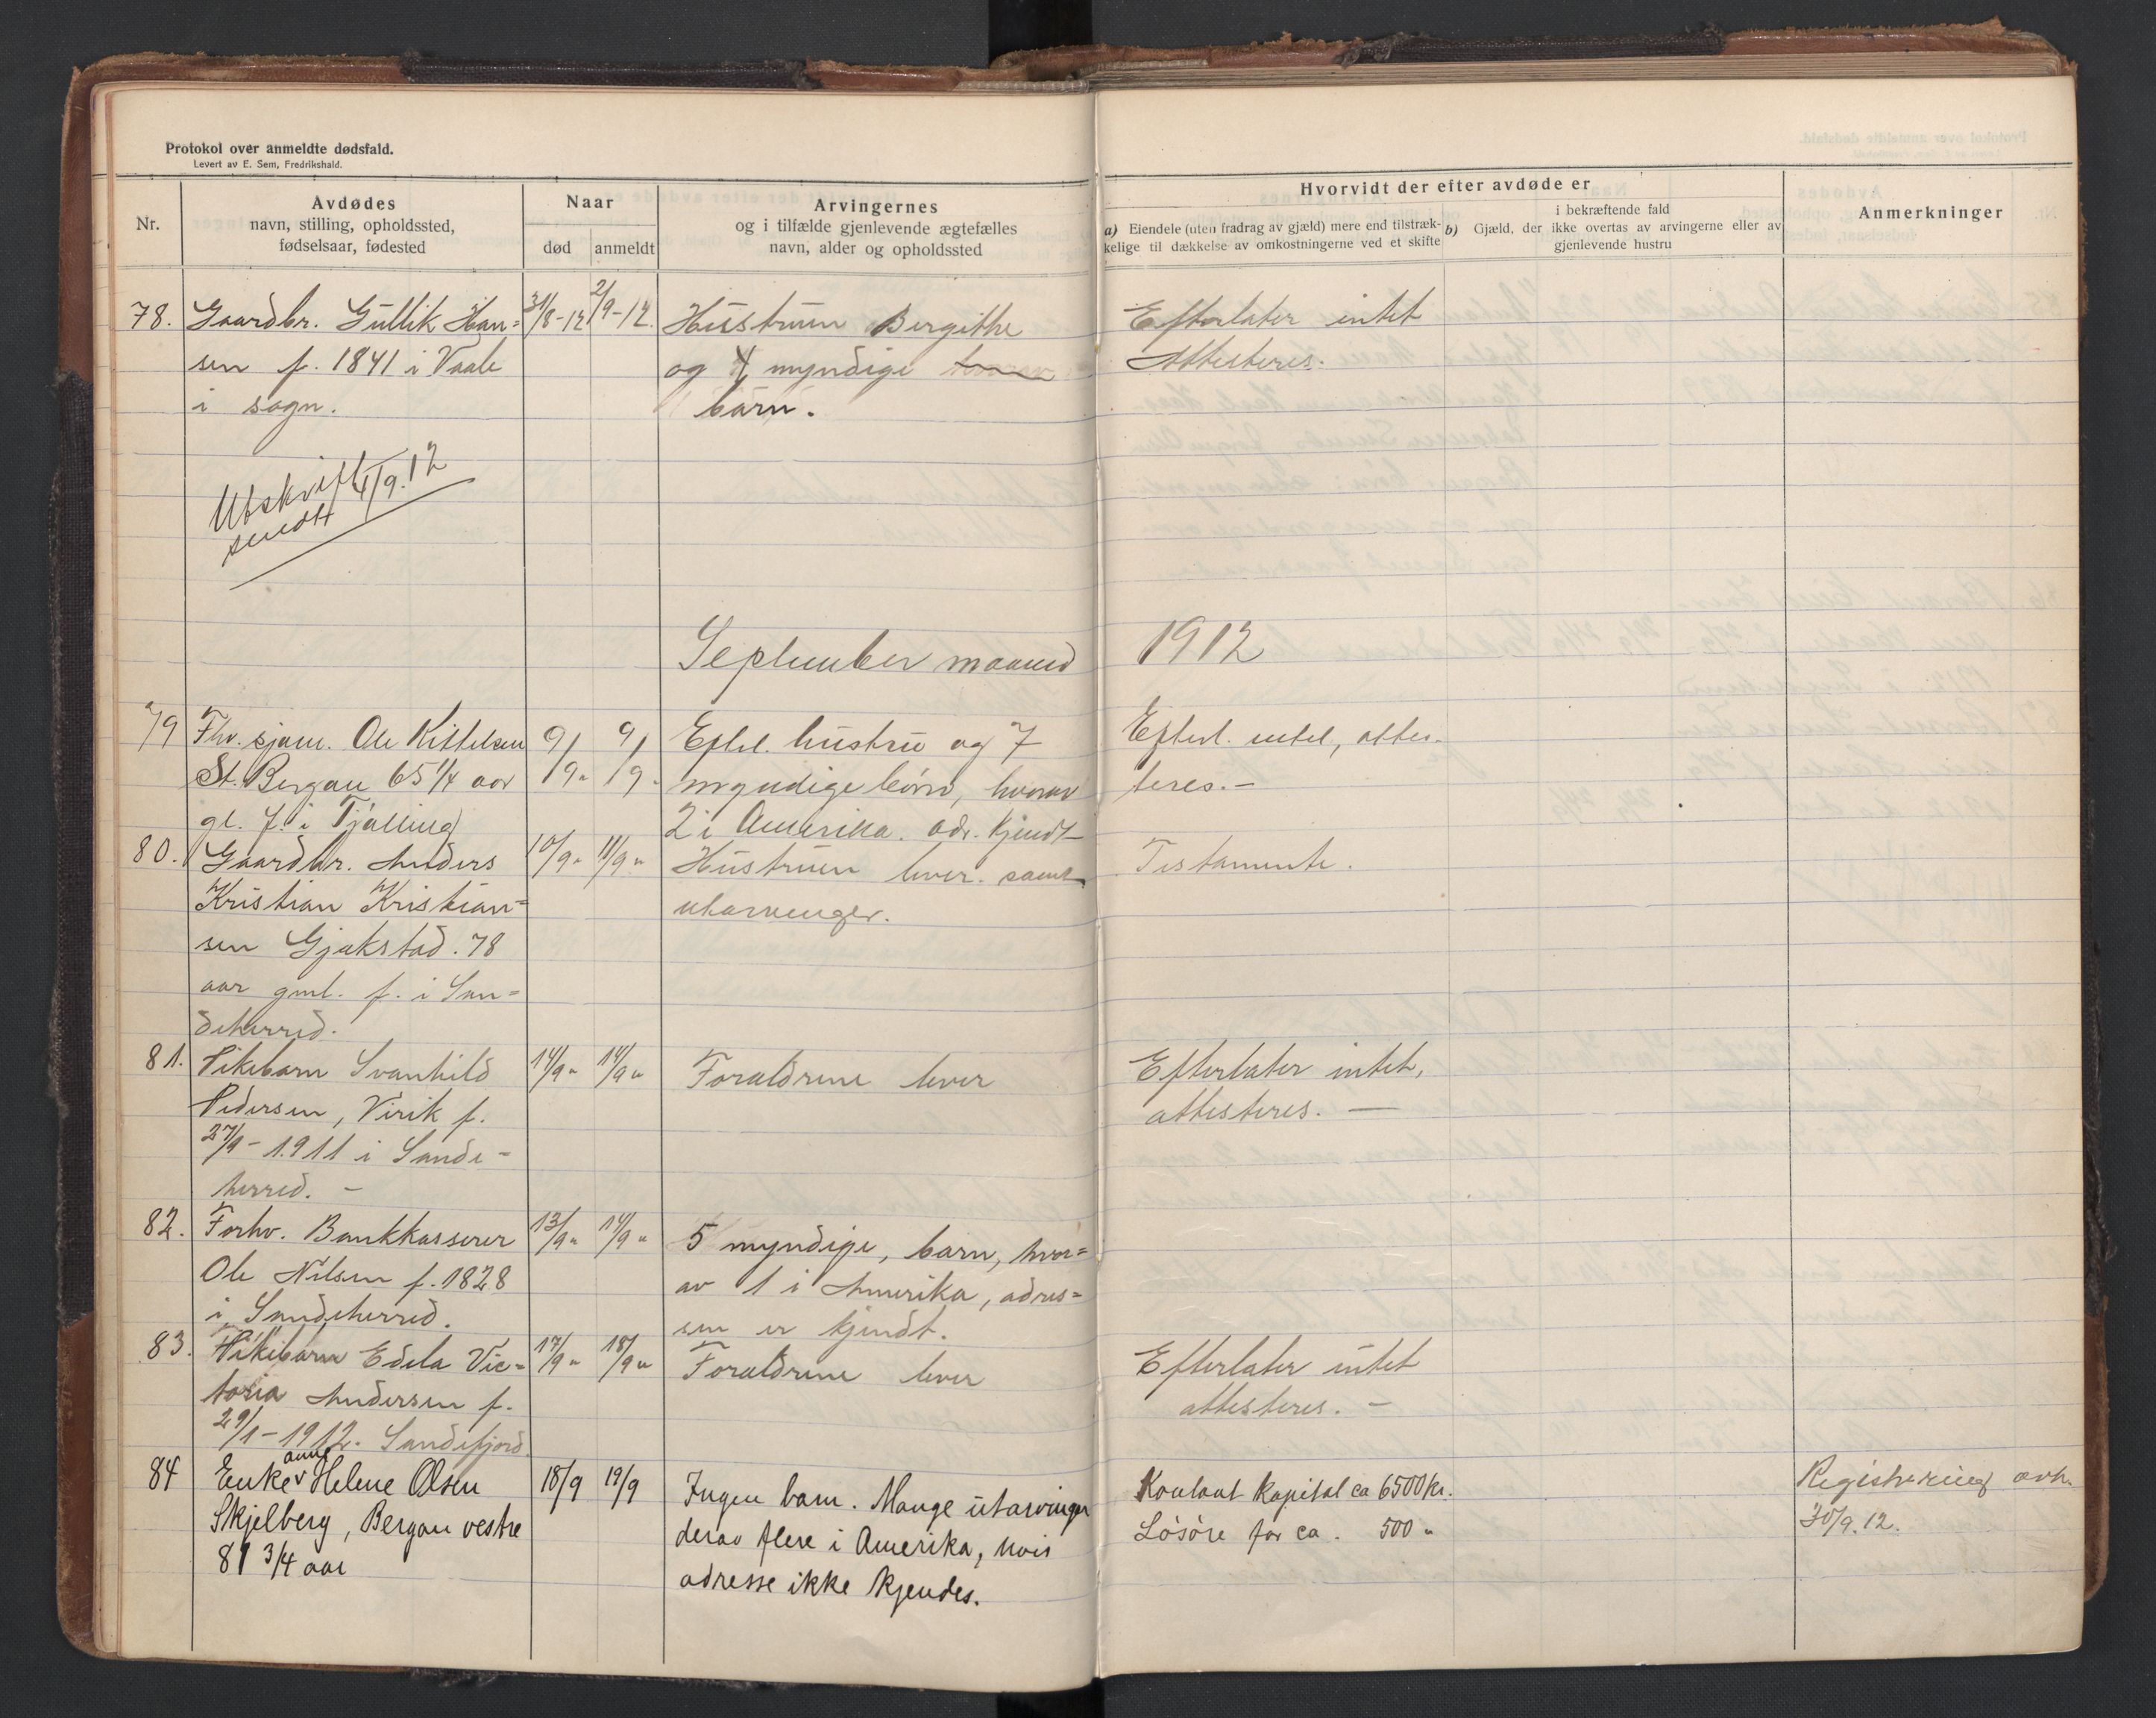 Protokol over anmeldte dødsfald.
Levert av E. Sem, Fredrikshald.
Nr.
Avdødes
navn, stilling, opholdssted,
fødselsaar, fødested
Naar
død
anmeldt
Arvingernes
og i tilfælde gjenlevende ægtefælles
navn, alder og opholdssted
Hvorvidt der efter avdøde er
a) Eiendele (uten fradrag av gjæld) mere end tilstræk-
kelige til dækkelse av omkostningerne ved et skifte
b) Gjæld, der ikke overtas av arvingerne eller av
i bekræftende fald
gjenlevende hustru
Anmerkninger
78. Gaardbr. Gullik Han=
sen f. 1841 i Vaale
i sogn.
31/8-12
2/9-12.
Hustruen Bergithe
og 4 myndige
barn.
Efterlater intet
Attesteres.
Utskrift 4/9.12
sendt
September maaned 1912
79 Fhv. sjøm. Ole Kittelsen
St. Bergan 65 1/4 aar
gl. f. i Tjølling
9/9 "
9/9 "
Efterl. hustru og 7
myndige børn, hvorav
2 i Amerika. adr. kjendt
Efterl. intet, attes-
teres.-
80. Gaardbr. Anders
Kristian Kristian=
sen Gjekstad. 78
aar gml. f. i San=
deherred.
10/9 "
11/9 "
Hustruen lever. samt
utarvinger.
Testamente.
81. Pikebarn Svanhild
Pedersen, Virik f.
27/9-1911 i Sande-
herred. -
14/9 "
14/9 "
Forældrene lever
Efterlater intet,
attesteres. -
82. Forhv. Bankkasserer
Ole Nilsen f. 1828
i Sandeherred.
13/9 "
14/9 "
5 myndige, barn, hvor=
av 1 i Amerika, adres=
sen er kjendt.
83. Pikebarn Edela Vic=
toria Andersen f.
29/1-1912. Sandefjord
17/9 "
18/9 "
Forældrene lever
Efterlater intet
attesteres. -
84 Enke Anne Helene Olsen
Skjelberg, Bergan vestre
81 3/4 aar
18/9
19/9
Ingen barn. Mange utarvinger
derav flere i Amerika, hvis
adresse ikke kjendes.
Kontant kapital ca 6500 kr.
Løsøre for ca. 500 "
Registrering avh.
30/9.12.